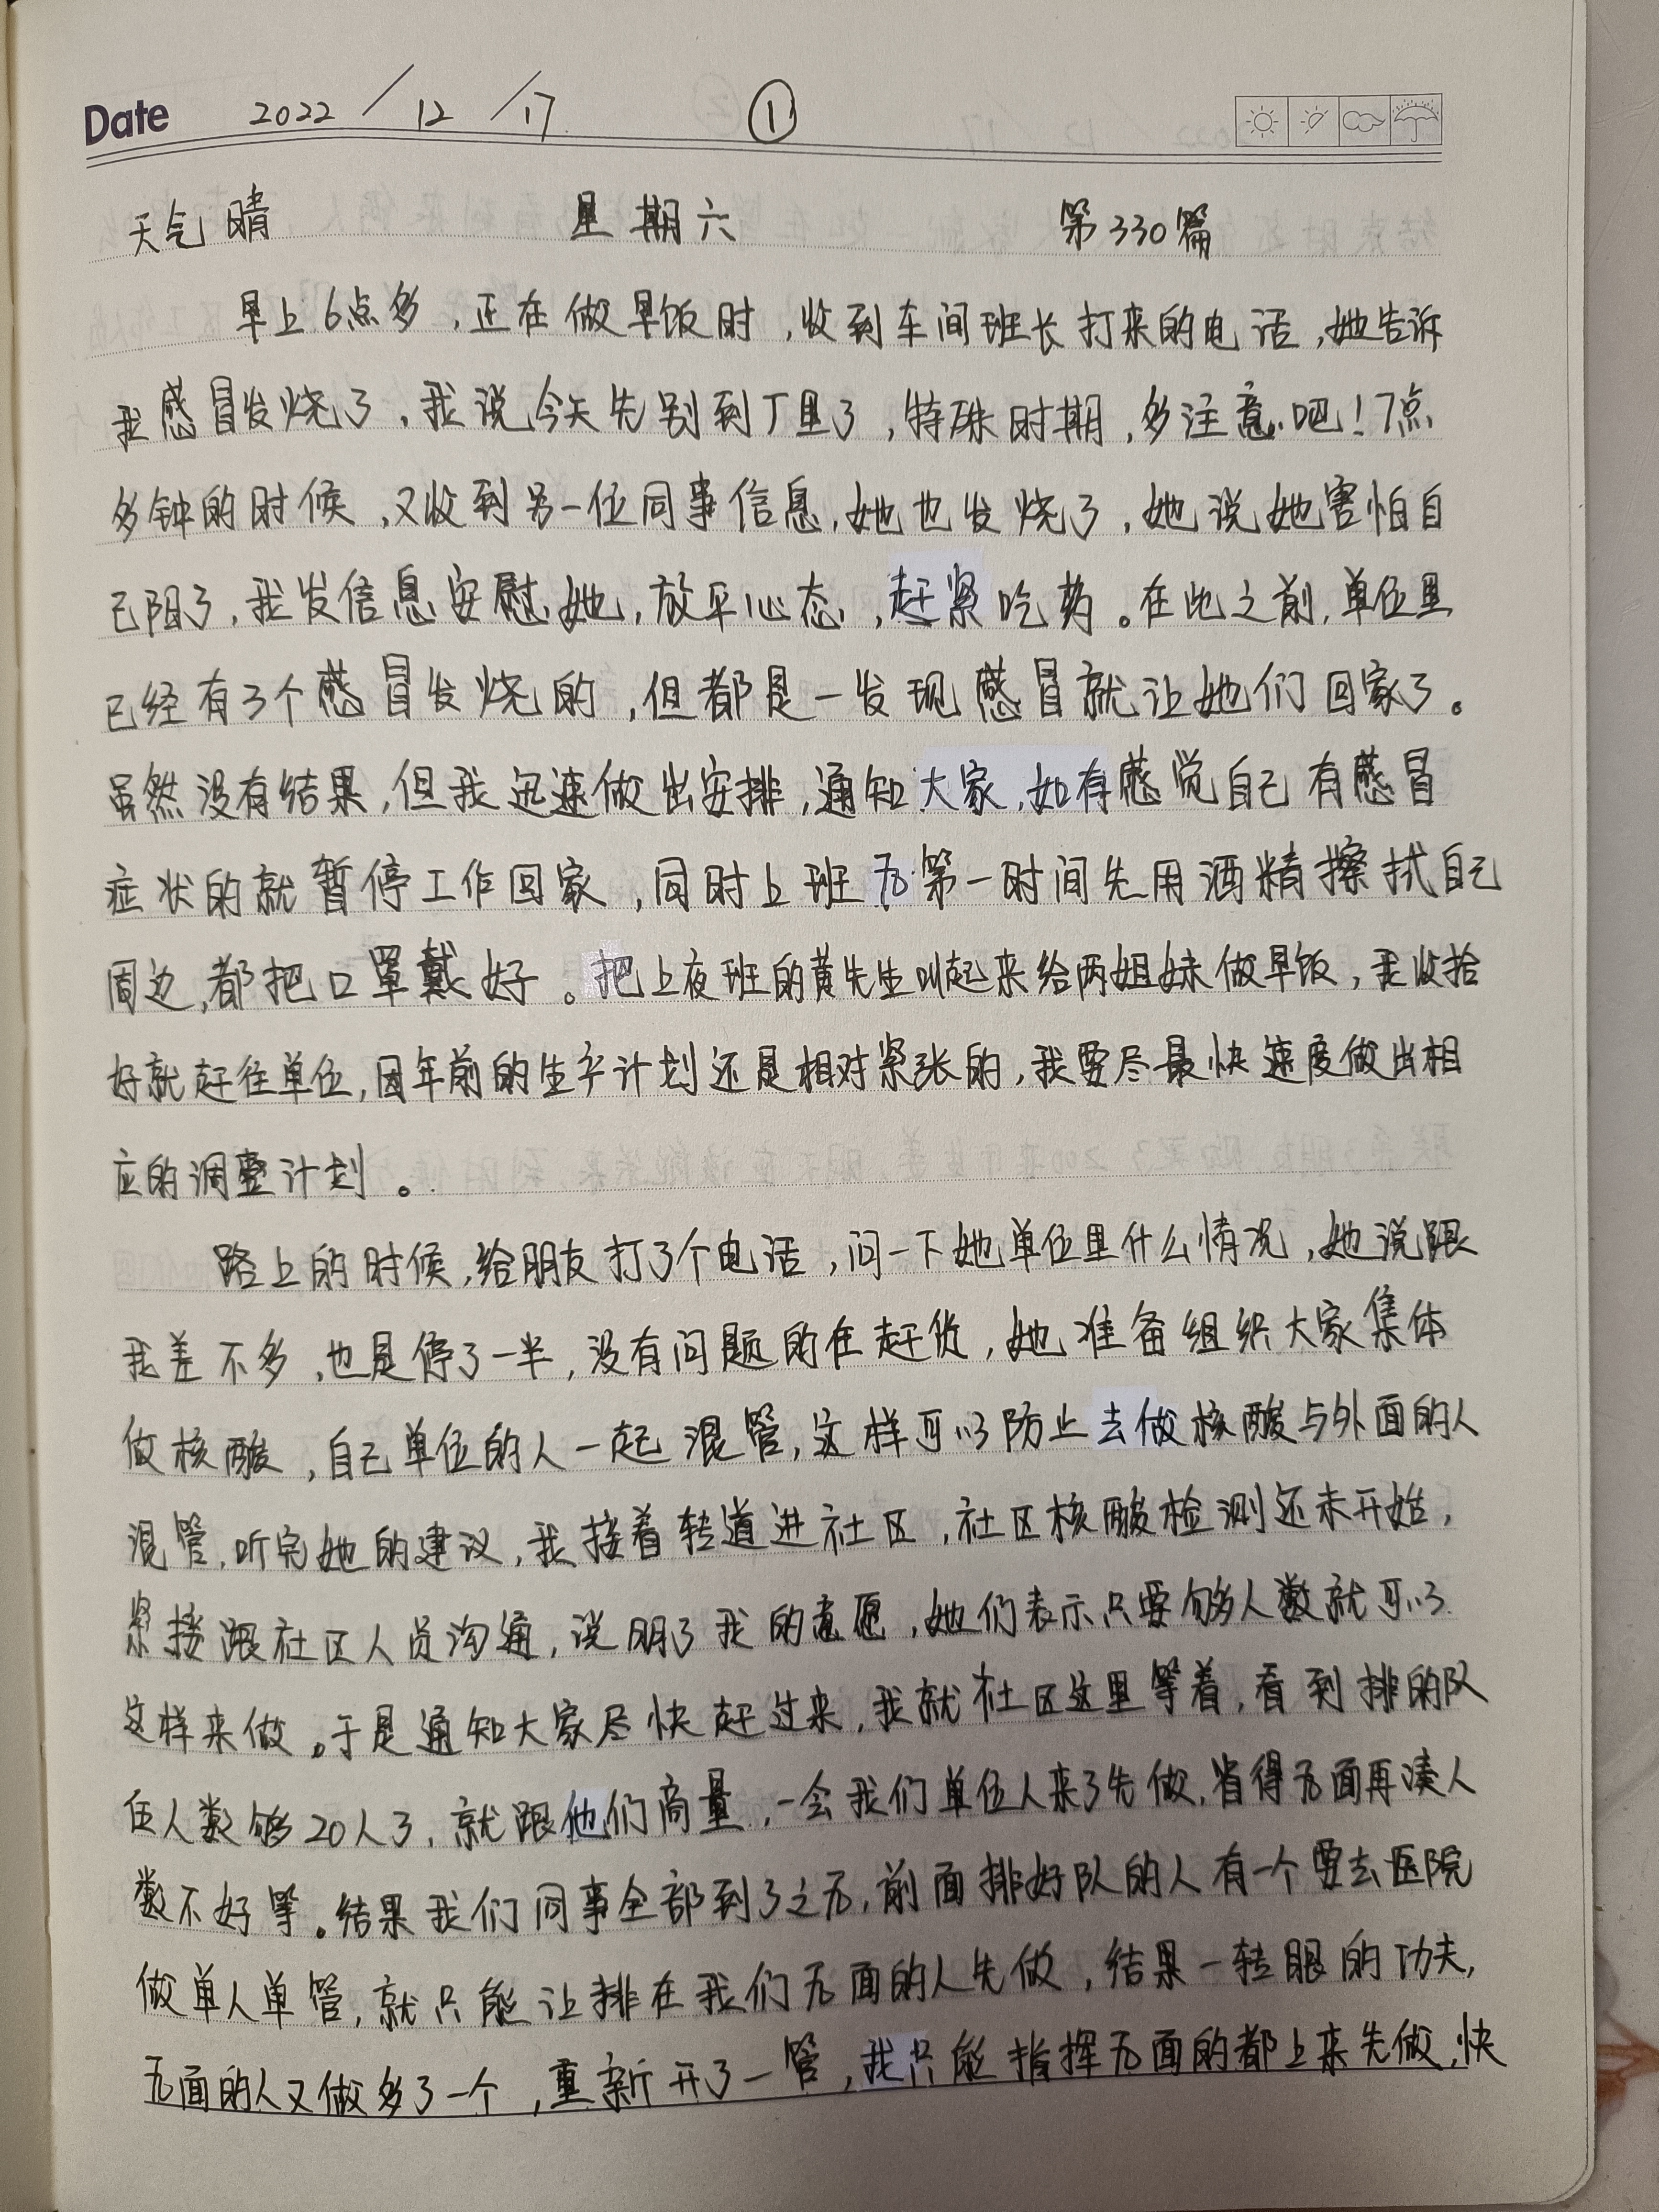 Date 2022 / 12 / 17 ①
天气晴 星期六 第330篇
早上6点多,正在做早饭时,收到车间班长打来的电话,她告诉
我感冒发烧了,我说今天先别到厂里了,特殊时期,多注意吧!7点
多钟的时候,又收到另一位同事信息,她也发烧了,她说她害怕自
己阳了,我发信息安慰她,放平心态,赶紧吃药。在此之前,单位里
已经有3个感冒发烧的,但都是一发现感冒就让她们回家了。
虽然没有结果,但我迅速做出安排,通知大家,如有感觉自己有感冒
症状的就暂停工作回家,同时上班后第一时间先用酒精擦拭自己
周边,都把口罩戴好。把上夜班的黄先生叫起来给两姐妹做早饭,我收拾
好就赶往单位,因年前的生产计划还是相对紧张的,我要尽最快速度做出相
应的调整计划。
路上的时候,给朋友打了个电话,问一下她单位里什么情况,她说跟
我差不多,也是停了一半,没有问题的在赶货,她准备组织大家集体
做核酸,自己单位的人一起混管,这样可以防止去做核酸与外面的人
混管,听完她的建议,我接着转道进社区,社区核酸检测还未开始,
紧接跟社区人员沟通,说明了我的意愿,她们表示只要够人数就可以
这样来做。于是通知大家尽快赶过来,我就社区这里等着,看到排的队
伍人数够20人了,就跟他们商量,一会我们单位人来了先做,省得后面再凑人
数不好等。结果我们同事全部到了之后,前面排好队的人有一个要去医院
做单人单管,就只能让排在我们后面的人先做,结果一转眼的功夫,
后面的人又做多了一个,重新开了一管,我只能指挥后面的都上来先做,快